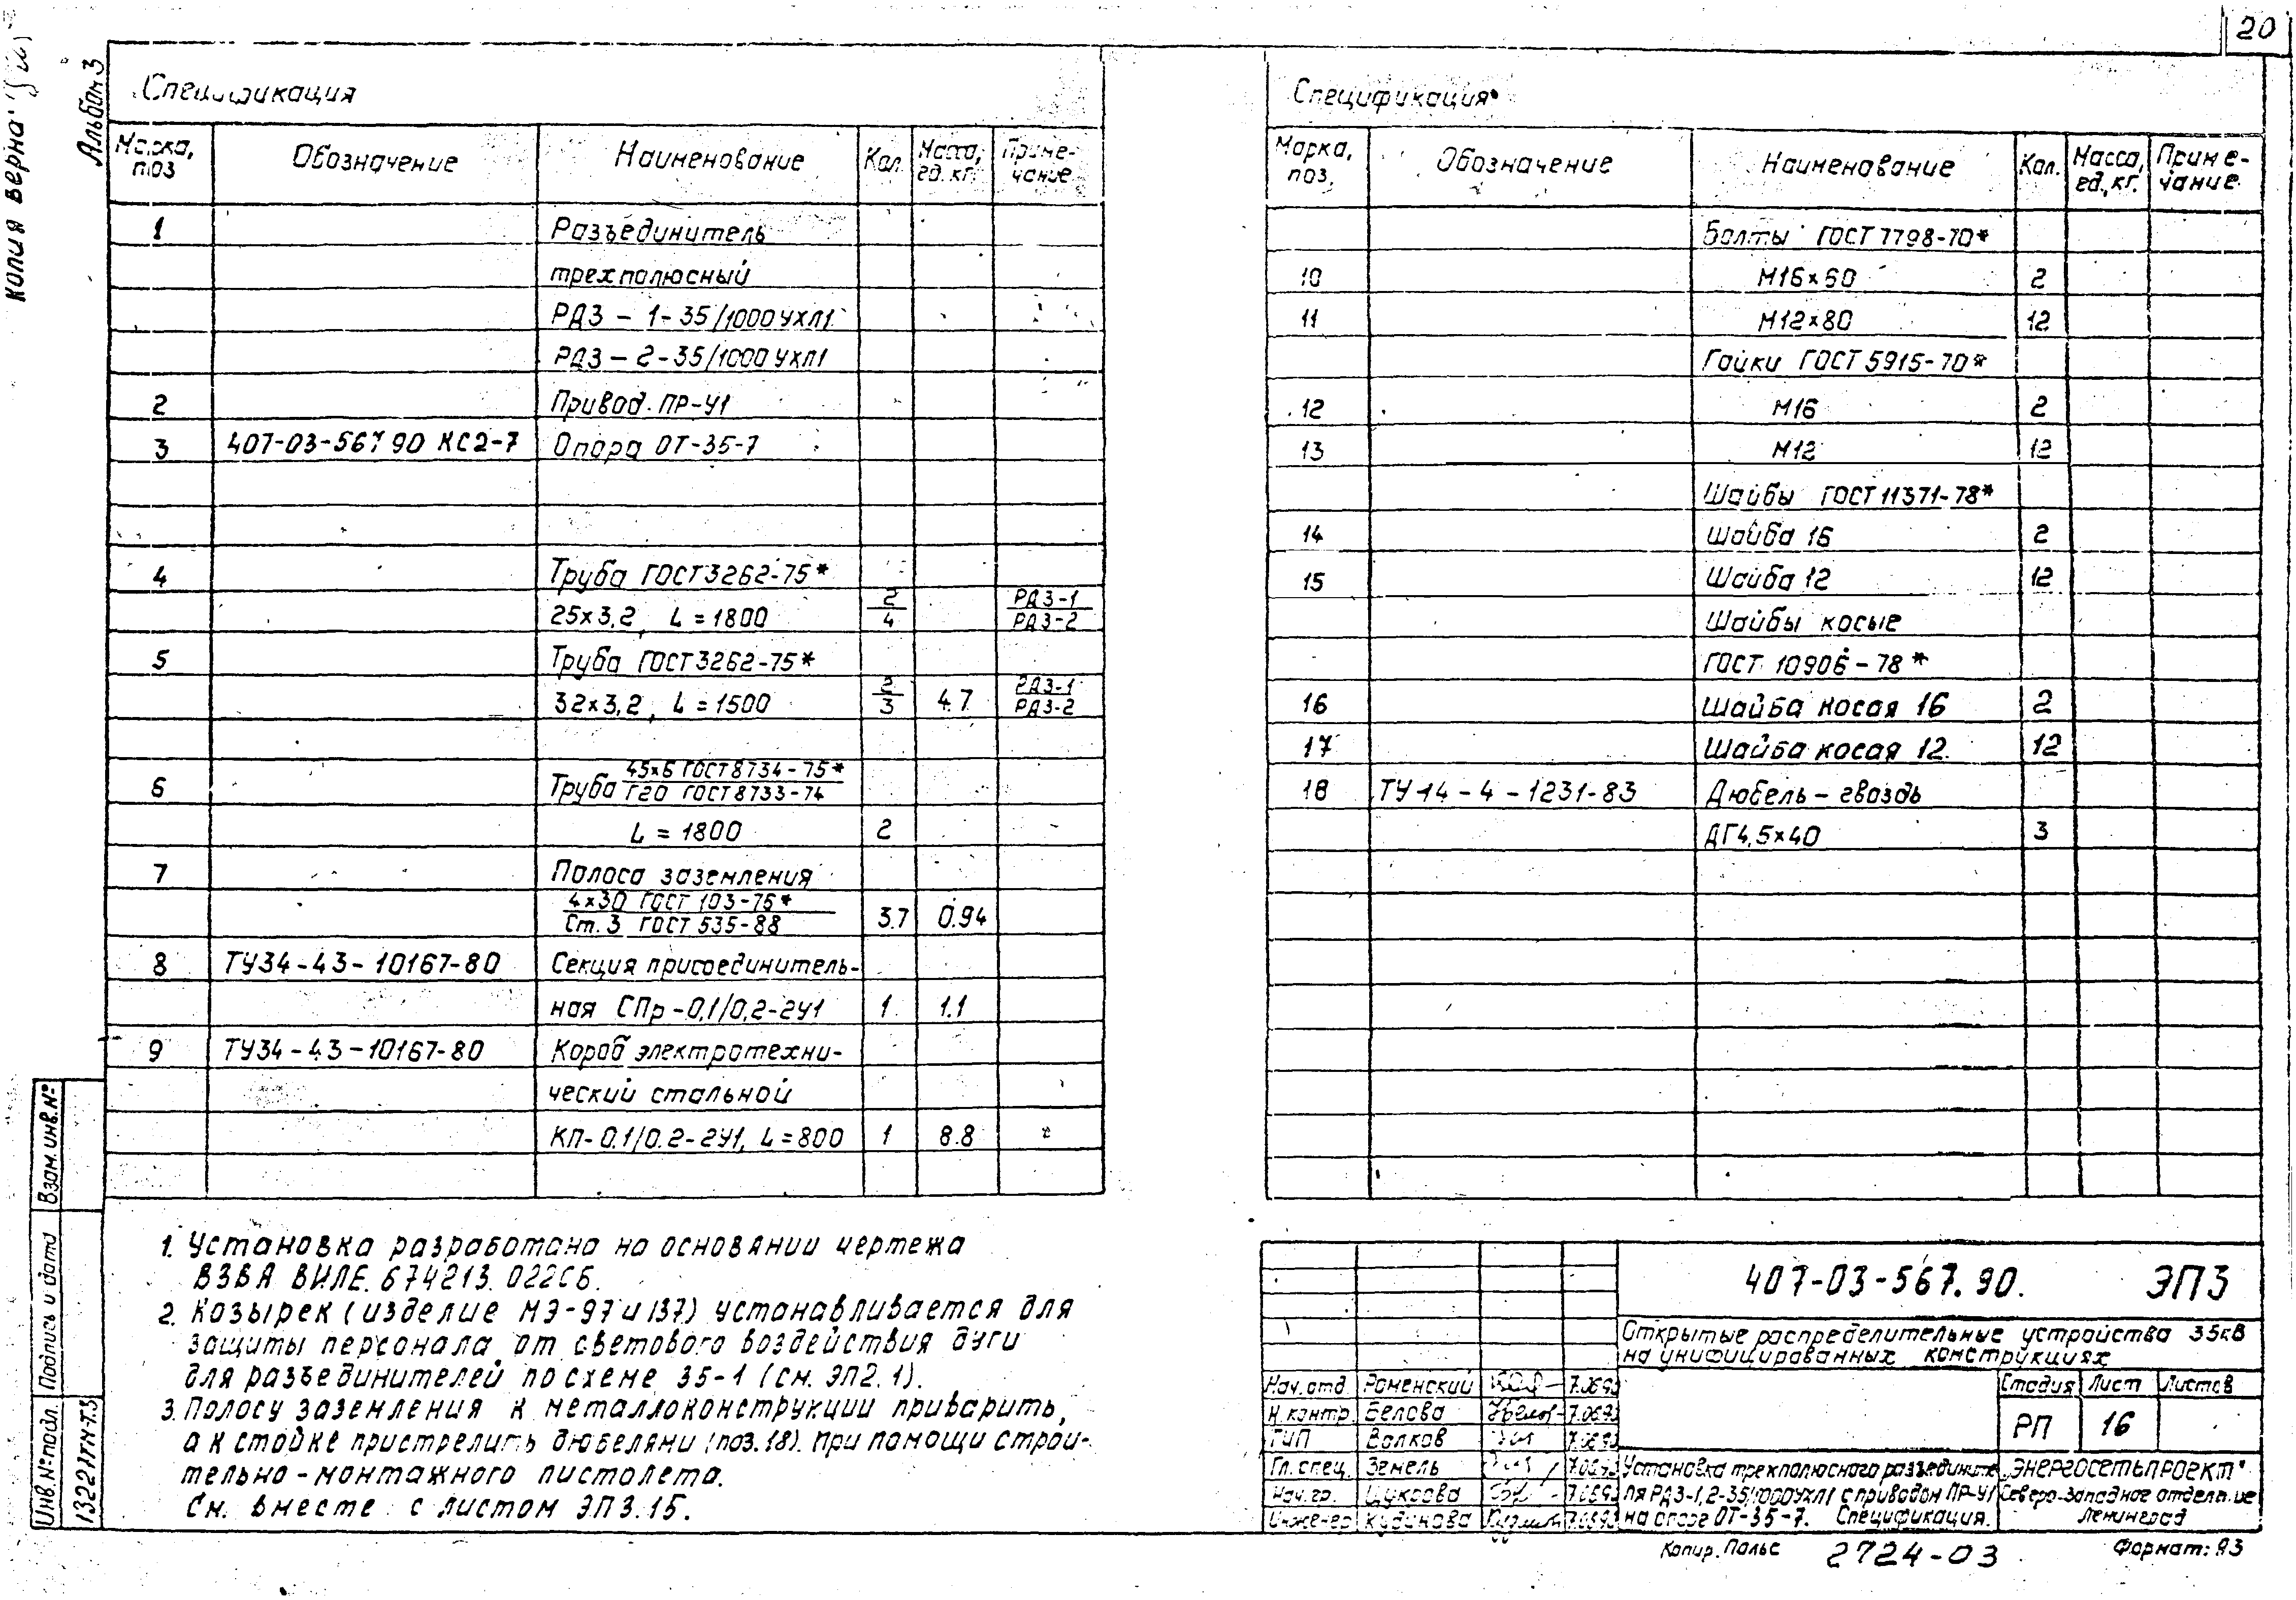 20
Копия верна
Альбом 3
Спецификация
Марка, поз Обозначение Наименование Кол. Масса, ед. кг. Примечание
1 Разъединитель
трехполюсный
РДЗ - 1-35/1000 УХЛ1
РДЗ - 2-35/1000 УХЛ1
2 Привод ПР-У1
3 407-03-567 90 КС2-7 Опора ОТ-35-7
4 Труба ГОСТ 3262-75*
25х3,2, L = 1800 2/4 РДЗ-1/РДЗ-2
5 Труба ГОСТ 3262-75*
32х3,2, L = 1500 2/3 4.7 РДЗ-1/РДЗ-2
6 Труба 45х6 ГОСТ 8734-75*/Г20 ГОСТ 8733-74
L = 1800 2
7 Полоса заземления
4х30 ГОСТ 103-76*/Ст. 3 ГОСТ 535-88 3.7 0.94
8 ТУ34-43-10167-80 Секция присоединитель-
ная СПр-0,1/0,2-2У1 1 1.1
9 ТУ34-43-10167-80 Короб электротехни-
ческий стальной
КП-0.1/0.2-2У1, L=800 1 8.8
Спецификация
Марка, поз. Обозначение Наименование Кол. Масса, ед., кг. Примечание
Болты ГОСТ 7798-70*
10 М16х60 2
11 М12х80 12
Гайки ГОСТ 5915-70*
12 М16 2
13 М12 12
Шайбы ГОСТ 11371-78*
14 Шайба 16 2
15 Шайба 12 12
Шайбы косые
ГОСТ 10906-78*
16 Шайба косая 16 2
17 Шайба косая 12. 12
18 ТУ14-4-1231-83 Дюбель-гвоздь
ДГ4,5х40 3
1. Установка разработана на основании чертежа
ВЗВА ВИЛЕ. 674213. 022СБ.
2. Козырек (изделие МЭ-97 и 137) устанавливается для
защиты персонала от светового воздействия дуги
для разъединителей по схеме 35-1 (см. ЭП2.1).
3. Полосу заземления к металлоконструкции приварить,
а к стойке пристрелить дюбелями (поз. 18). при помощи строи-
тельно-монтажного пистолета.
См. вместе с листом ЭП3.15.
Взам. инв. №
Подпись и дата
Инв. № подл. 13227ТМ-Т3
407-03-567.90. ЭП3
Открытые распределительные устройства 35кВ
на унифицированных конструкциях
Нач. отд. Роменский 7.06.90
Н. контр. Белова 7.06.90
ГИП Волков 7.06.90
Гл. спец. Земель 7.06.90
Нач. гр. Цукрова 7.06.90
Инженер Кудинова 7.06.90
Стадия Лист Листов
РП 16
Установка трехполюсного разъедините-
ля РДЗ-1,2-35/1000УХЛ1 с приводом ПР-У1
на опоре ОТ-35-7. Спецификация.
„ЭНЕРГОСЕТЬПРОЕКТ"
Северо-Западное отделение
Ленинград
Копир. Польс 2724-03 Формат: А3